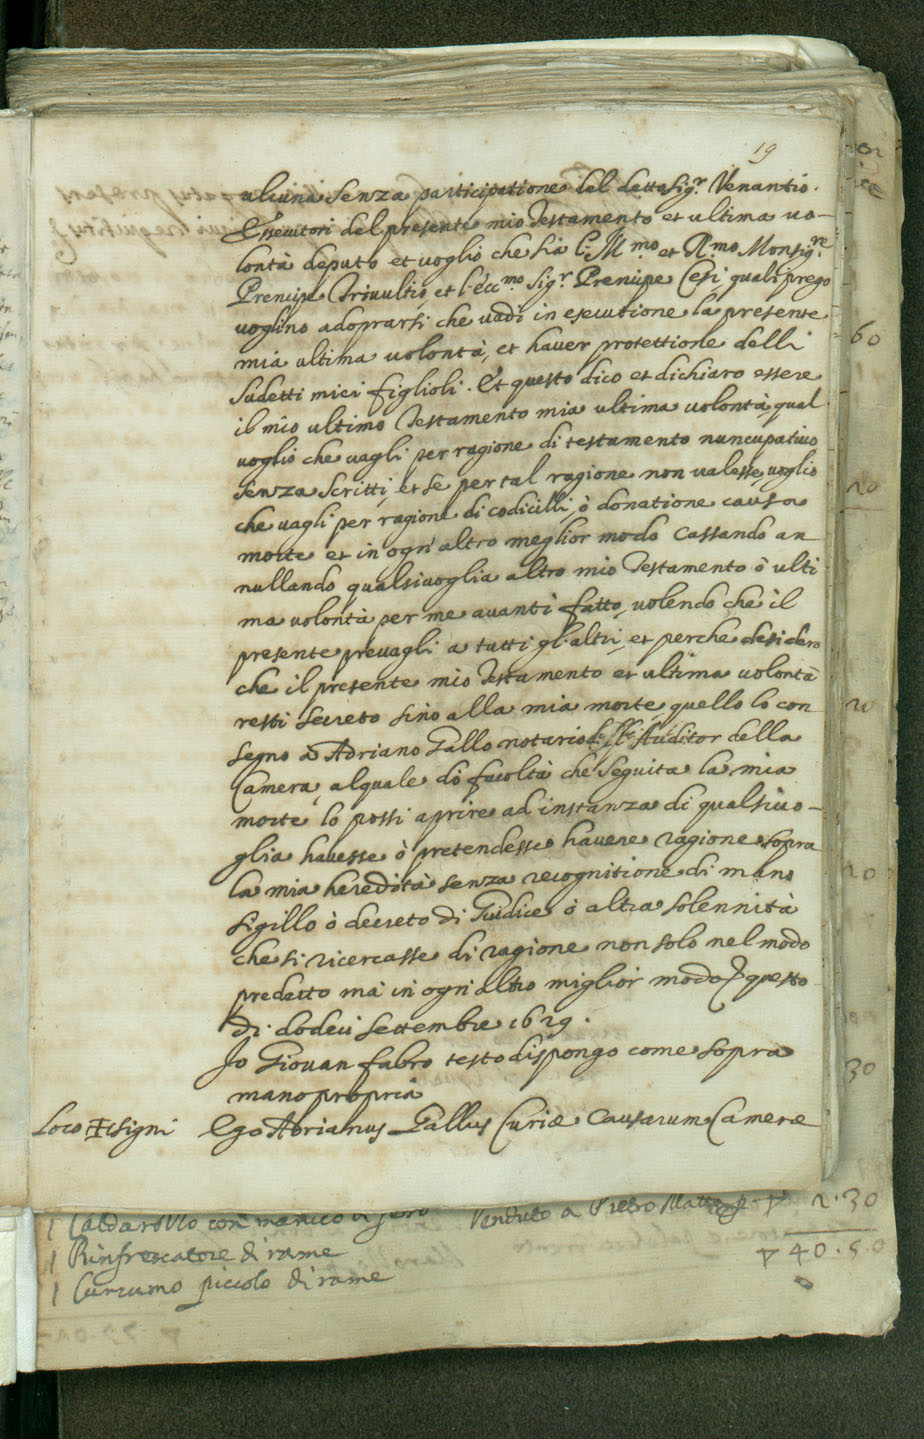 19
alcuna senza participatione del detto Sig.r Venantio.
Essecutori del presente mio Testamento et ultima uo-
lontà deputo et voglio che sia l'Ill.mo et R.mo Monsig.re
Prencipe Triuultio, et l'ecc.mo Sig.r Prencipe Cesi quali prego
voglino adoprarsi che vadi in esecutione la presente
mia ultima volontà, et hauer protettione delli
sudetti miei figlioli. Et questo dico et dichiaro essere
il mio ultimo Testamento mia ultima volontà, qual
voglio che vagli per ragione di testamento nuncupatiuo
senza scritti, et se per tal ragione non valesse, voglio
che vagli per ragione di codicilli, ò donatione causa
morte et in ogn'altro meglior modo cassando an
nullando qualsiuoglia altro mio Testamento ò ulti
ma volontà per me auanti fatto, volendo che il
presente preuagli a tutti gl'altri, et perche desidero
che il presente mio Testamento et ultima volontà
resti secreto sino alla mia morte, quello lo con
segno à Adriano Gallo notario Auditor della
Camera, al quale dò facoltà che seguita la mia
morte lo possi aprire ad instanza di qualsiuo-
glia hauesse ò pretendesse hauere ragione sopra
la mia heredità senza recognitione di mano
sigillo ò decreto di Giudice ò altra solennità
che si ricercasse di ragione non solo nel modo
predetto mà in ogn'altro miglior modo questo
dì dodeci settembre 1629.
Io Giouan fabro testo dispongo come sopra
mano propria
Loco + signi Ego Adrianus Gallus Curiæ Causarum Cameræ
60
20
20
20
30
1 Caldarozzo con manico di ferro Venduto a Pietro 2.30
1 Rinfrescatore di rame 40.50
1 Cucumo piccolo di rame